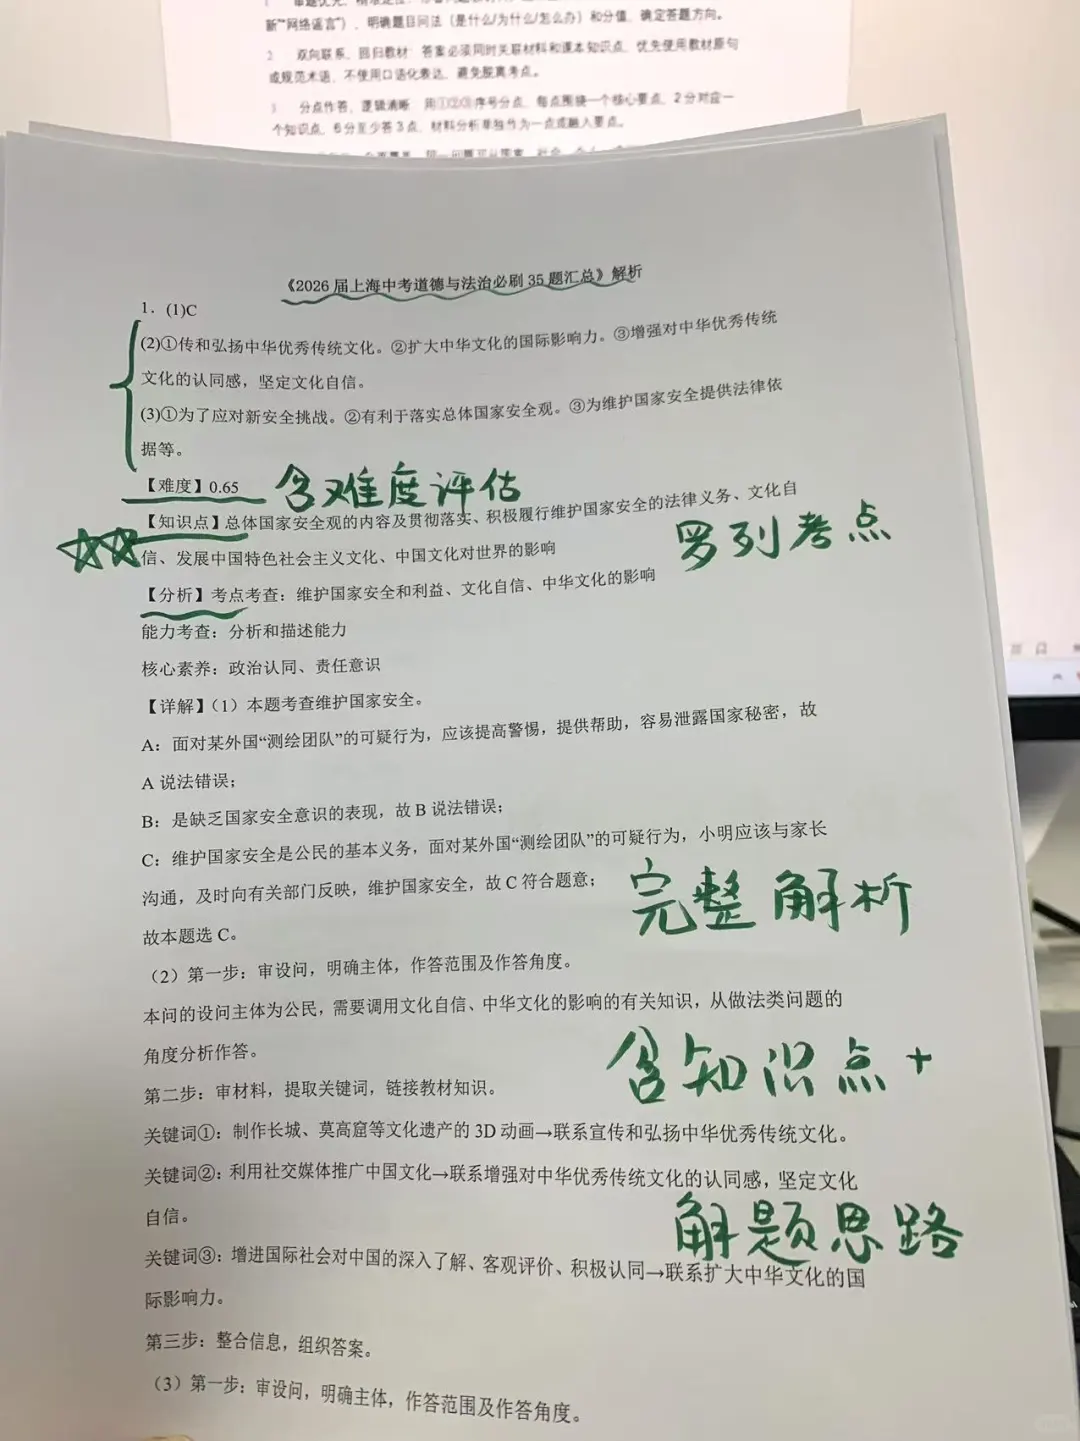 新"网络谣言"）、明确题目问法（是什么/为什么/怎么办）和分值，确定答题方向。
2 双向联系，回归教材 答案必须同时关联材料和课本知识点，优先使用教材原句
或规范术语，不使用口语化表达，避免脱离考点。
3 分点作答，逻辑清晰 用①②③序号分点，每点围绕一个核心要点，2分对应一
个知识点，6分至少答3点，材料分析单独作为一点或融入要点。
《2026届上海中考道德与法治必刷35题汇总》解析
1．(1)C
(2)①传和弘扬中华优秀传统文化。②扩大中华文化的国际影响力。③增强对中华优秀传统
文化的认同感，坚定文化自信。
(3)①为了应对新安全挑战。②有利于落实总体国家安全观。③为维护国家安全提供法律依
据等。
【难度】0.65 含难度评估
【知识点】总体国家安全观的内容及贯彻落实、积极履行维护国家安全的法律义务、文化自
罗列考点
信、发展中国特色社会主义文化、中国文化对世界的影响
【分析】考点考查：维护国家安全和利益、文化自信、中华文化的影响
能力考查：分析和描述能力
核心素养：政治认同、责任意识
【详解】（1）本题考查维护国家安全。
A：面对某外国“测绘团队”的可疑行为，应该提高警惕，提供帮助，容易泄露国家秘密，故
A 说法错误；
B：是缺乏国家安全意识的表现，故 B 说法错误；
C：维护国家安全是公民的基本义务，面对某外国“测绘团队”的可疑行为，小明应该与家长
沟通，及时向有关部门反映，维护国家安全，故 C 符合题意；
完整解析
故本题选 C。
（2）第一步：审设问，明确主体，作答范围及作答角度。
本问的设问主体为公民，需要调用文化自信、中华文化的影响的有关知识，从做法类问题的
角度分析作答。
含知识点+
第二步：审材料，提取关键词，链接教材知识。
关键词①：制作长城、莫高窟等文化遗产的 3D 动画→联系宣传和弘扬中华优秀传统文化。
关键词②：利用社交媒体推广中国文化→联系增强对中华优秀传统文化的认同感，坚定文化
自信。
解题思路
关键词③：增进国际社会对中国的深入了解、客观评价、积极认同→联系扩大中华文化的国
际影响力。
第三步：整合信息，组织答案。
（3）第一步：审设问，明确主体，作答范围及作答角度。